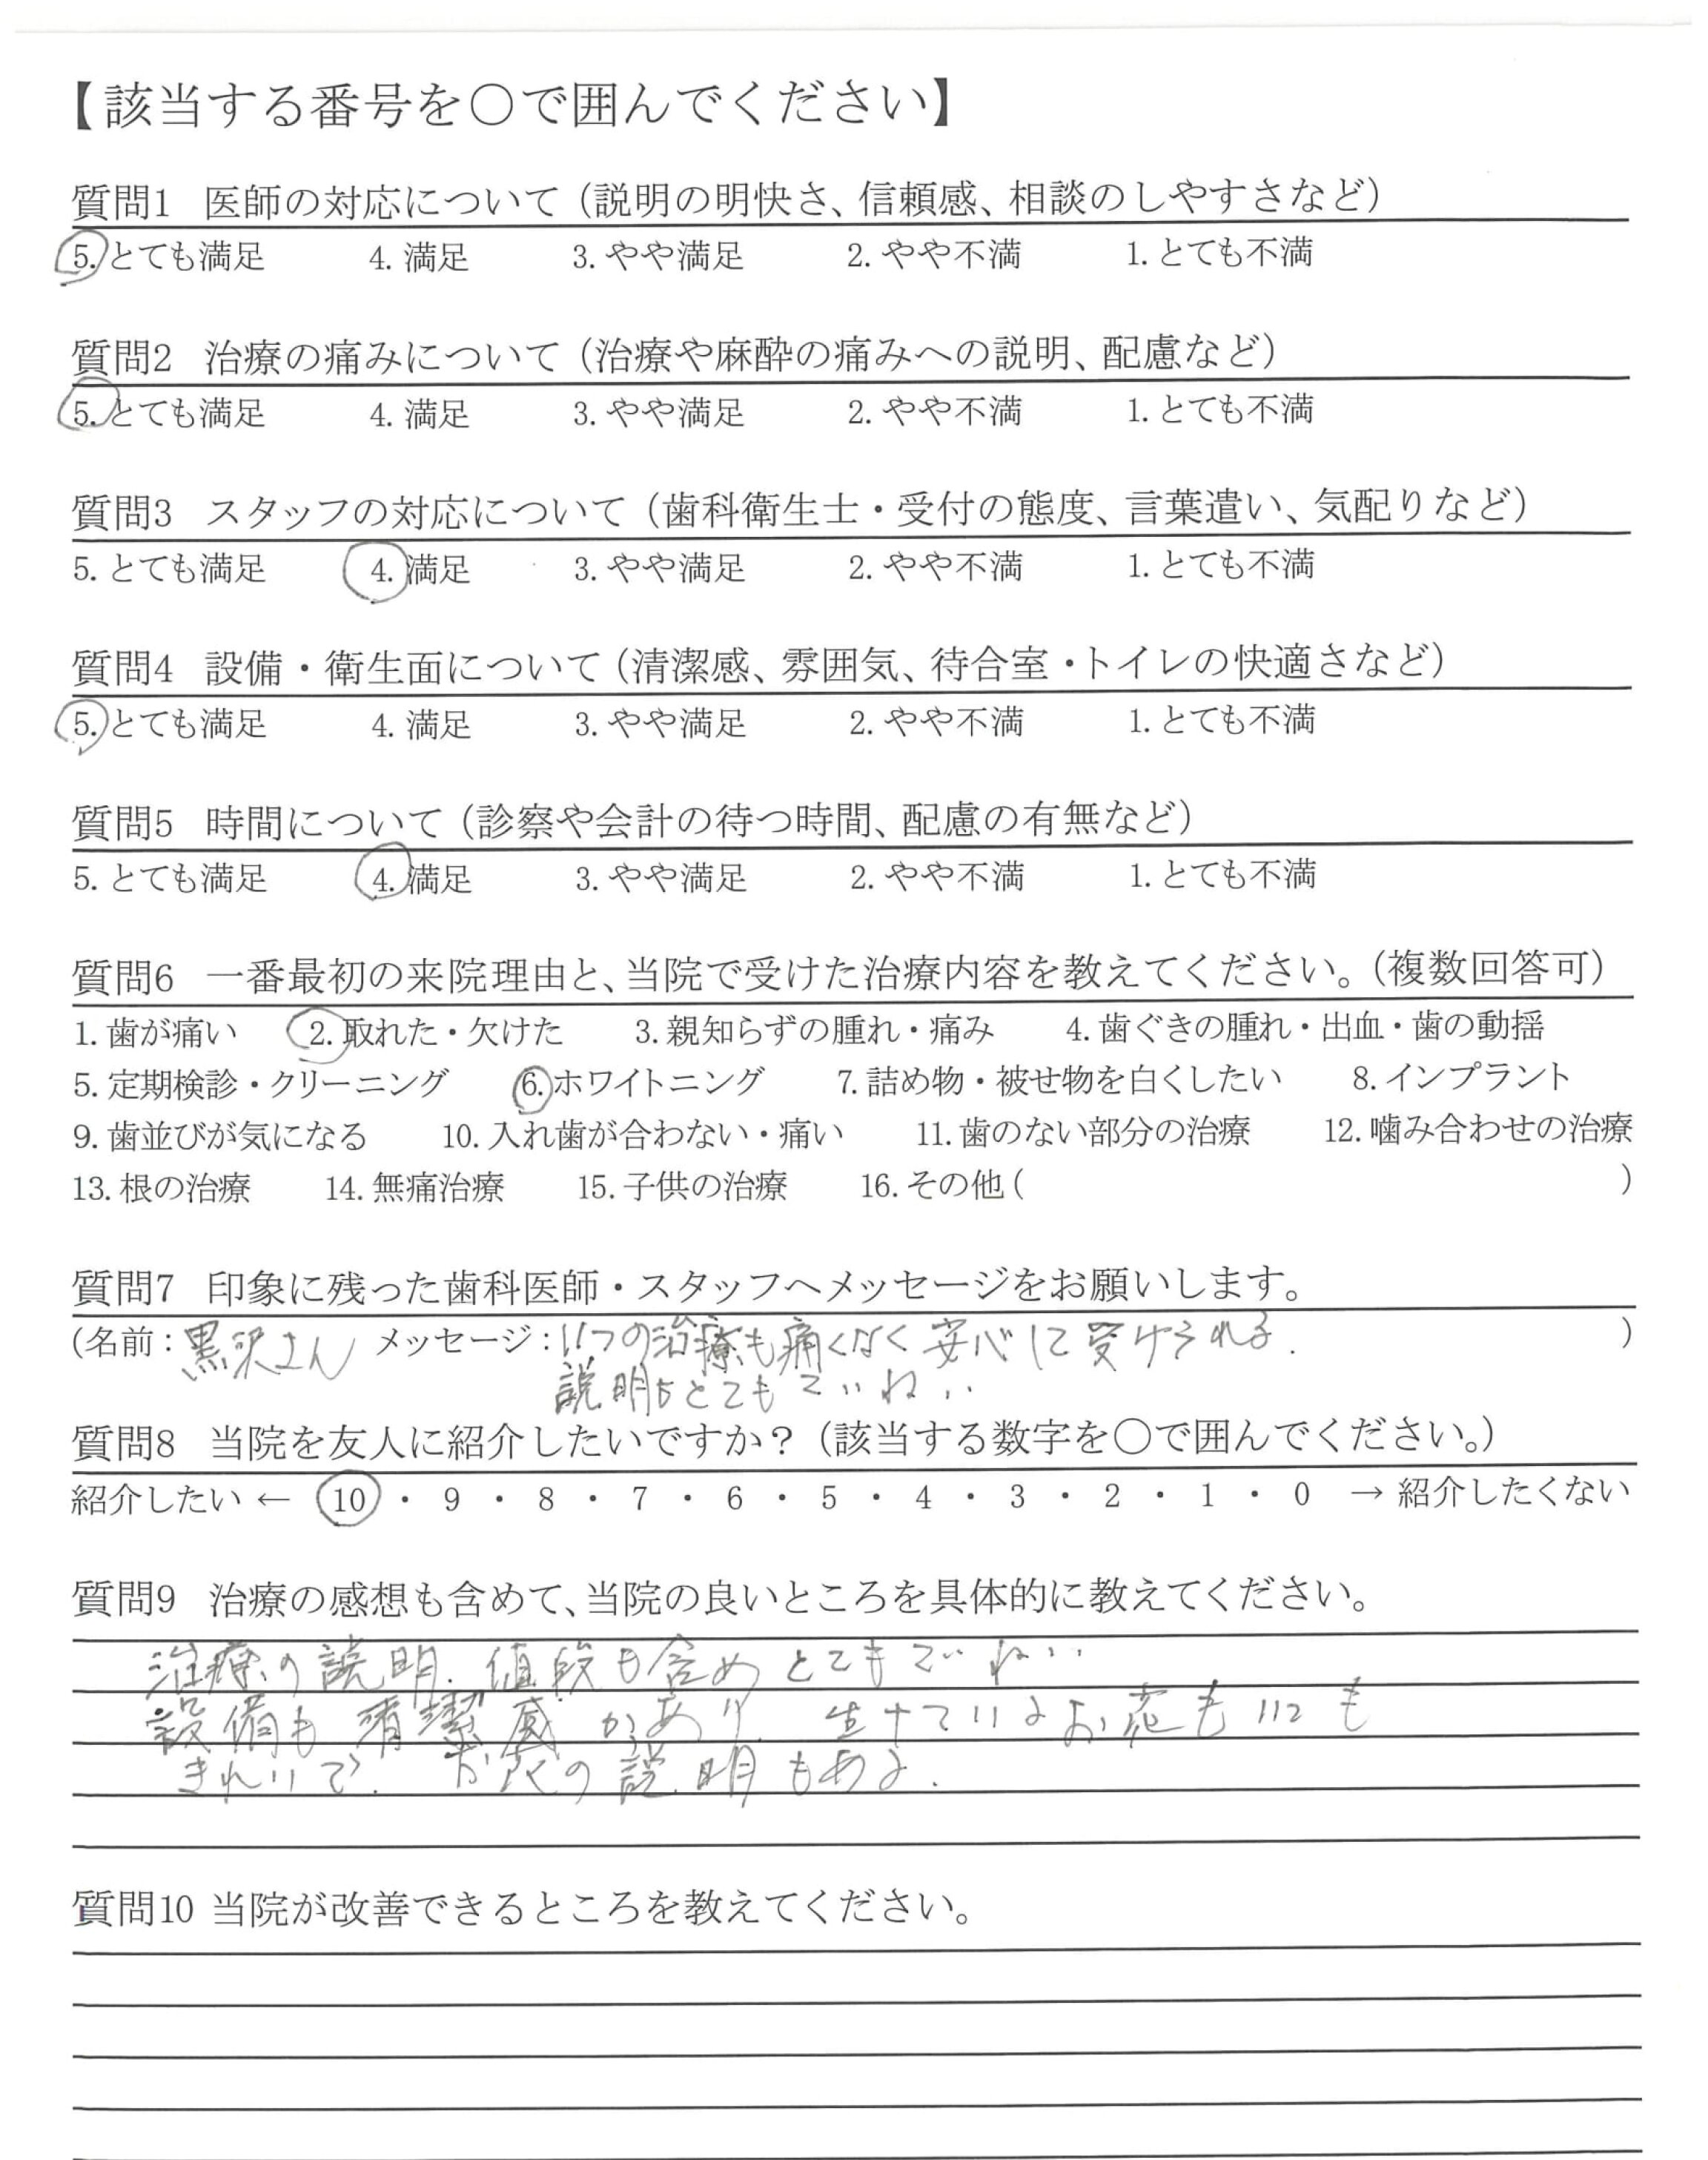 【該当する番号を○で囲んでください】
質問1 医師の対応について（説明の明快さ、信頼感、相談のしやすさなど）
5. とても満足 4. 満足 3. やや満足 2. やや不満 1. とても不満
質問2 治療の痛みについて（治療や麻酔の痛みへの説明、配慮など）
5. とても満足 4. 満足 3. やや満足 2. やや不満 1. とても不満
質問3 スタッフの対応について（歯科衛生士・受付の態度、言葉遣い、気配りなど）
5. とても満足 4. 満足 3. やや満足 2. やや不満 1. とても不満
質問4 設備・衛生面について（清潔感、雰囲気、待合室・トイレの快適さなど）
5. とても満足 4. 満足 3. やや満足 2. やや不満 1. とても不満
質問5 時間について（診察や会計の待つ時間、配慮の有無など）
5. とても満足 4. 満足 3. やや満足 2. やや不満 1. とても不満
質問6 一番最初の来院理由と、当院で受けた治療内容を教えてください。（複数回答可）
1. 歯が痛い 2. 取れた・欠けた 3. 親知らずの腫れ・痛み 4. 歯ぐきの腫れ・出血・歯の動揺
5. 定期検診・クリーニング 6. ホワイトニング 7. 詰め物・被せ物を白くしたい 8. インプラント
9. 歯並びが気になる 10. 入れ歯が合わない・痛い 11. 歯のない部分の治療 12. 噛み合わせの治療
13. 根の治療 14. 無痛治療 15. 子供の治療 16. その他（ ）
質問7 印象に残った歯科医師・スタッフへメッセージをお願いします。
（名前：黒沢さん メッセージ：いつの治療も痛くなく安心して受けられる. ）
説明もとてもていねい
質問8 当院を友人に紹介したいですか？（該当する数字を○で囲んでください。）
紹介したい ← 10 ・ 9 ・ 8 ・ 7 ・ 6 ・ 5 ・ 4 ・ 3 ・ 2 ・ 1 ・ 0 → 紹介したくない
質問9 治療の感想も含めて、当院の良いところを具体的に教えてください。
治療の説明. 値段も含めとてもていねい
設備も清潔感があり. 生けているお花もいつも
きれいで. お花の説明もある.
質問10 当院が改善できるところを教えてください。